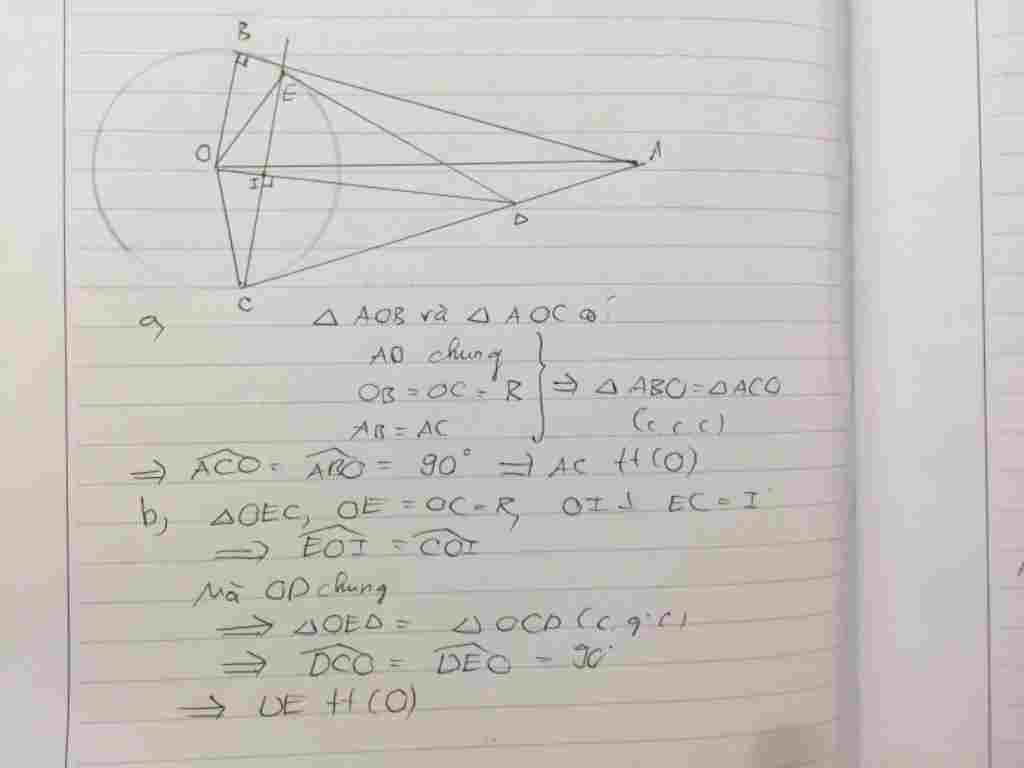 B
E
O
A
I
D
C
a, Δ AOB và Δ AOC có
AO chung
OB = OC = R ⇒ Δ ABO = Δ ACO
AB = AC (c c c)
⇒ \widehat{ACO} = \widehat{ABO} = 90° ⇒ AC tt (O)
b, ΔOEC, OE = OC = R, OI ⊥ EC = I
⇒ \widehat{EOI} = \widehat{COI}
Mà OD chung
⇒ ΔOED = Δ OCD (c.g.c)
⇒ \widehat{DCO} = \widehat{DEO} = 90°
⇒ DE tt (O)